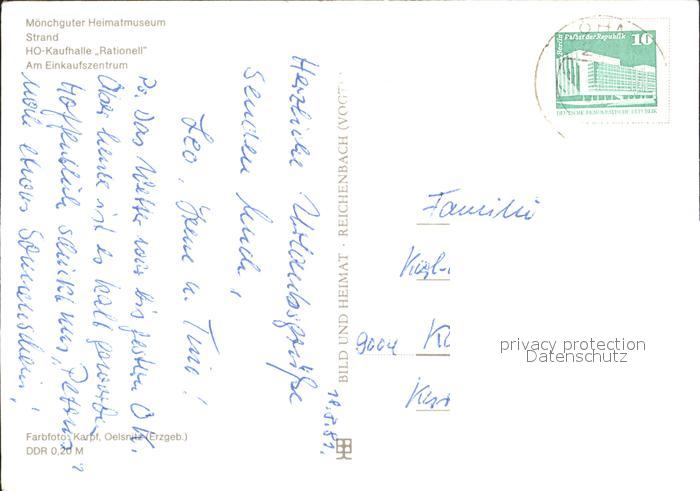 Mönchguter Heimatmuseum
Strand
HO-Kaufhalle „Rationell"
Am Einkaufszentrum
18.7.81.
Herzliche Urlaubsgrüße
senden Euch,
Leo, Irene u. Timo!
Ps. Das Wetter war bis gestern O.K.
Aber heute ist es kalt geworden.
Hoffentlich schickt uns „Petrus"
noch etwas Sonnenschein!
Farbfoto: Karpf, Oelsnitz (Erzgeb.)
DDR 0,20 M
BILD UND HEIMAT · REICHENBACH (VOGTL
Berlin Palast der Republik
10
DEUTSCHE DEMOKRATISCHE REPUBLIK
Familie
9004
privacy protection
Datenschutz